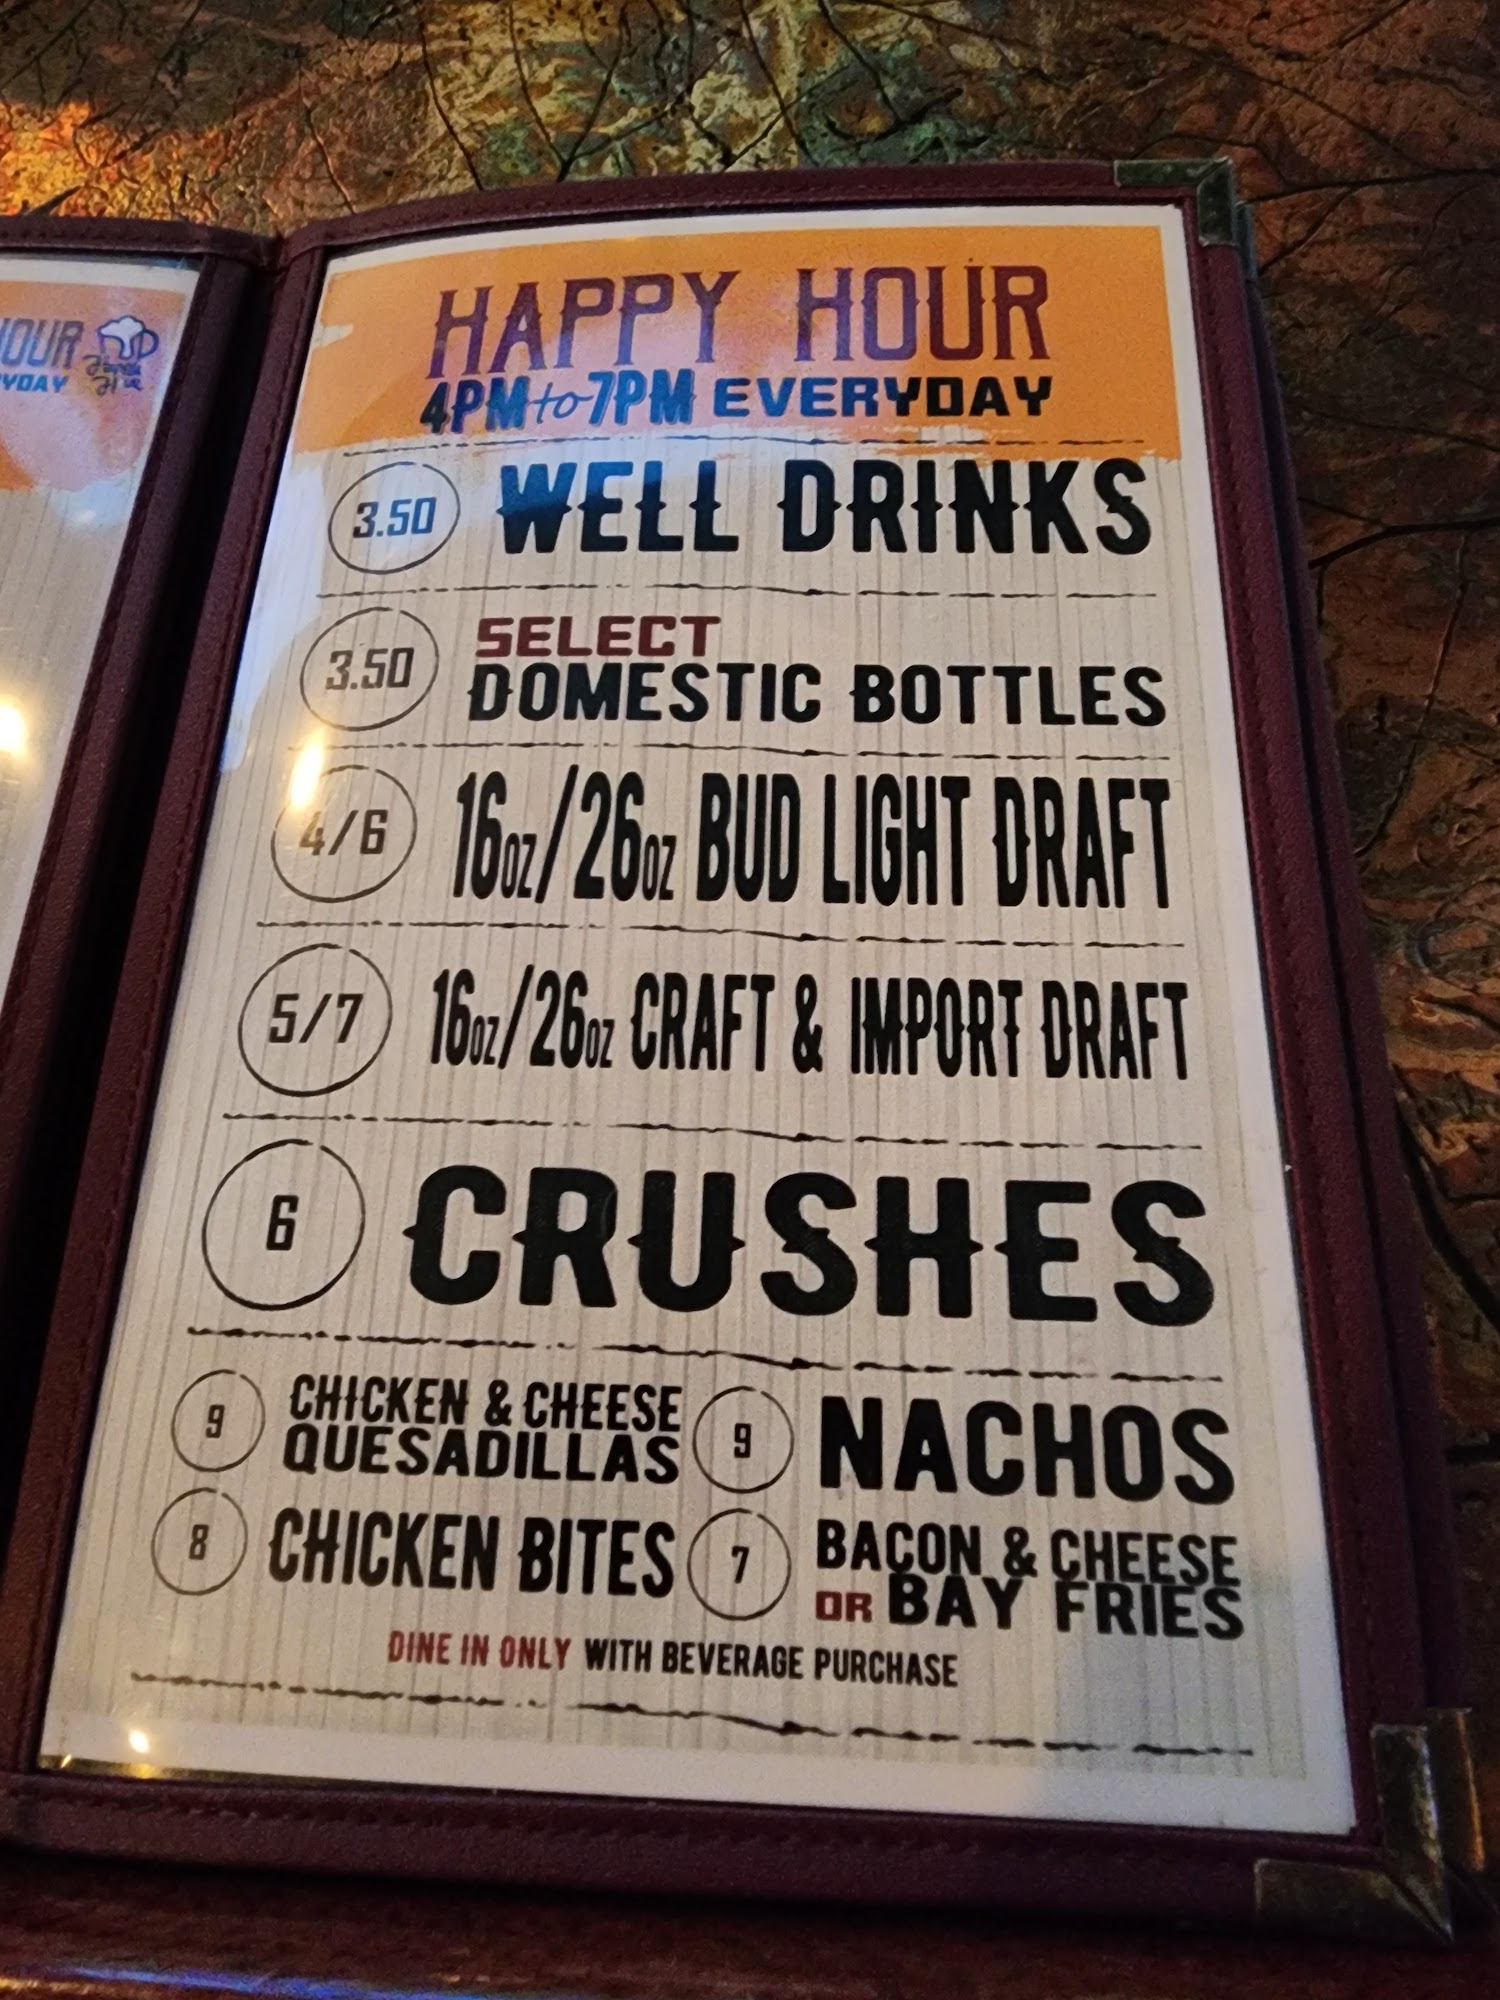 OUR
YDAY
HAPPY HOUR
4PM to 7PM EVERYDAY
3.50 WELL DRINKS
3.50 SELECT
DOMESTIC BOTTLES
4/6 16oz/26oz BUD LIGHT DRAFT
5/7 16oz/26oz CRAFT & IMPORT DRAFT
6 CRUSHES
9 CHICKEN & CHEESE
QUESADILLAS
9 NACHOS
8 CHICKEN BITES
7 BACON & CHEESE
OR BAY FRIES
DINE IN ONLY WITH BEVERAGE PURCHASE